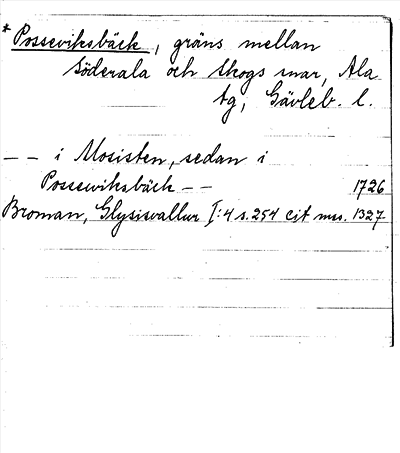 * Possewiksbäck, gräns mellan
Söderala och Skogs snar, Ala
tg, Gävleb. l.
– – i Mosisten, sedan i
Possewiksbäck – –
1726
Broman, Glysisvallur I:4 s. 254 cit ms. 1327